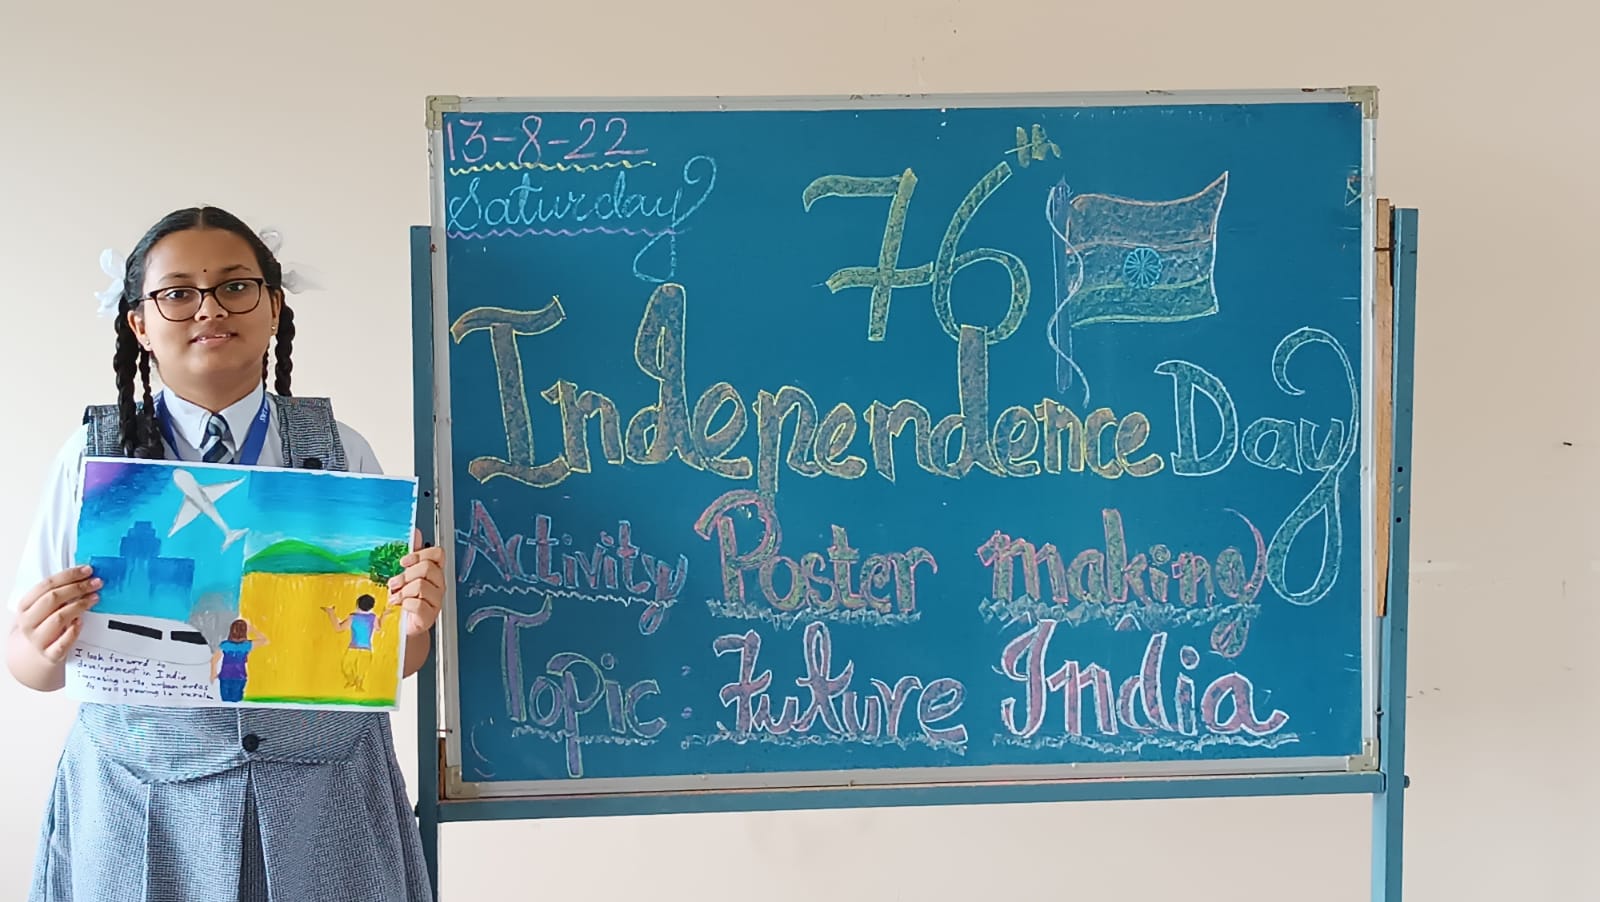 13-8-22
Saturday
76th
Independence Day
Activity Poster making
Topic: Future India
I look forward to
development in India
increasing into urban areas
As well growing in rural